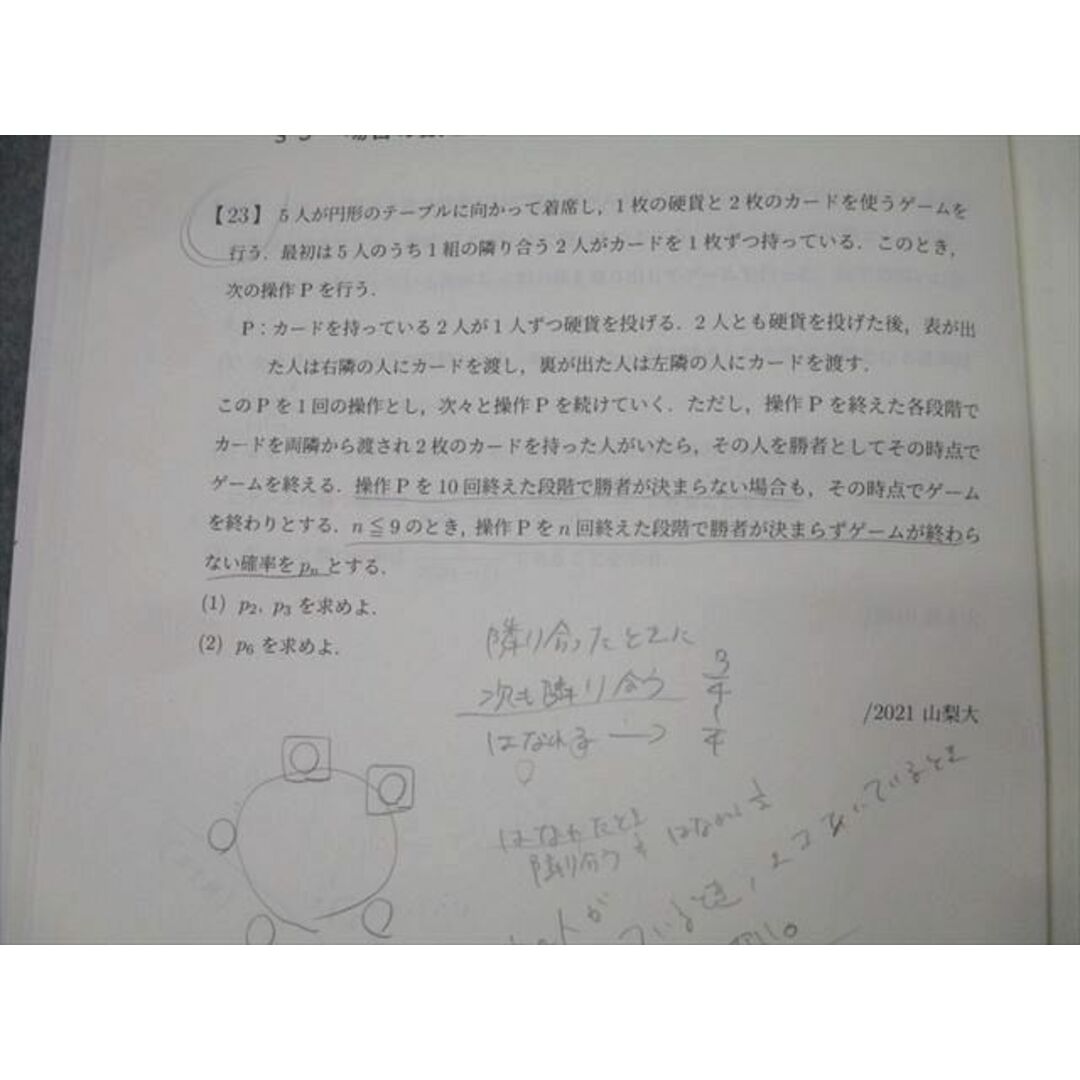 【23】 5人が円形のテーブルに向かって着席し，1枚の硬貨と2枚のカードを使うゲームを
行う．最初は5人のうち1組の隣り合う2人がカードを1枚ずつ持っている．このとき，
次の操作Pを行う．
P：カードを持っている2人が1人ずつ硬貨を投げる．2人とも硬貨を投げた後，表が出
た人は右隣の人にカードを渡し，裏が出た人は左隣の人にカードを渡す．
このPを1回の操作とし，次々と操作Pを続けていく．ただし，操作Pを終えた各段階で
カードを両隣から渡され2枚のカードを持った人がいたら，その人を勝者としてその時点で
ゲームを終える．操作Pを10回終えた段階で勝者が決まらない場合も，その時点でゲーム
を終わりとする．n≦9のとき，操作Pをn回終えた段階で勝者が決まらずゲームが終わら
ない確率をpnとする．
(1) p2, p3を求めよ．
(2) p6を求めよ．
隣り合ったときに
次も隣り合う 3/4
はなれる → 1/4
/2021 山梨大
はなれたとき
隣り合う はなれ 1/2